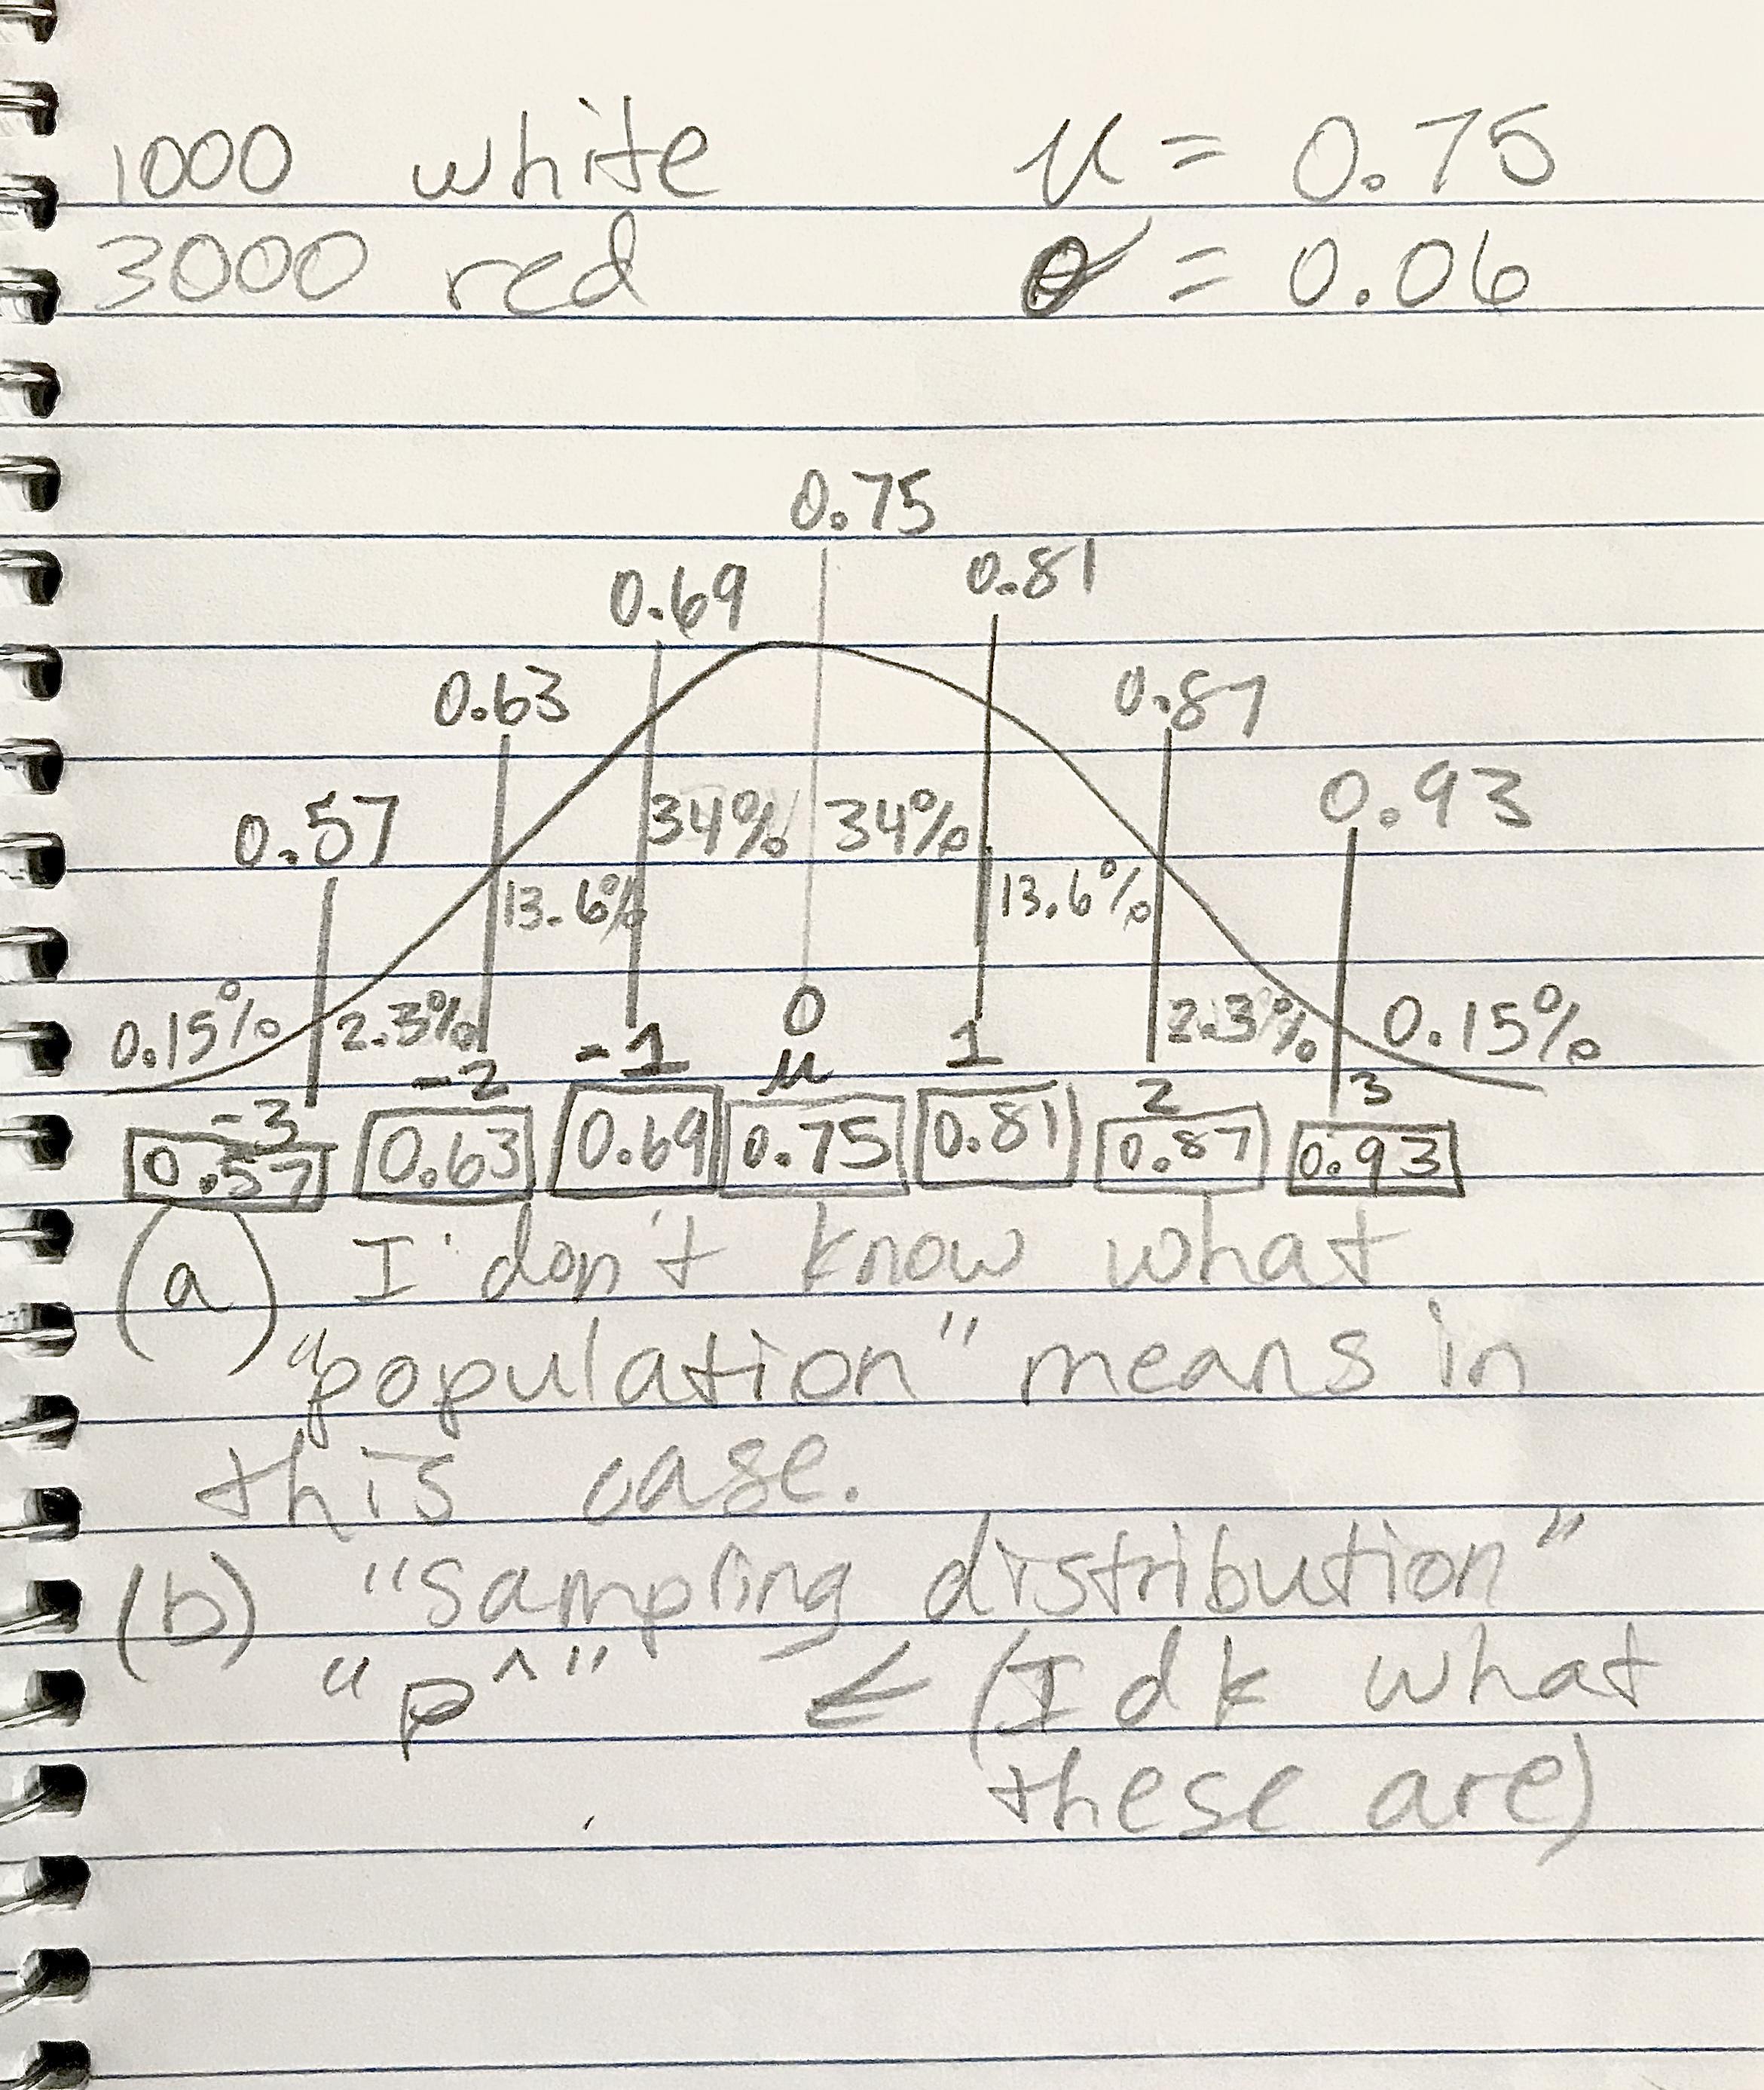 1000 white μ = 0.75
3000 red σ = 0.06
0.75
0.69 0.81
0.63 0.87
0.57 0.93
34% 34%
13.6% 13.6%
0.15% 2.3% 2.3% 0.15%
-3 -2 -1 0 1 2 3
μ
0.57 0.63 0.69 0.75 0.81 0.87 0.93
(a) I don't know what
"population" means in
this case.
(b) "sampling distribution"
"p^" ← (I dk what
these are)